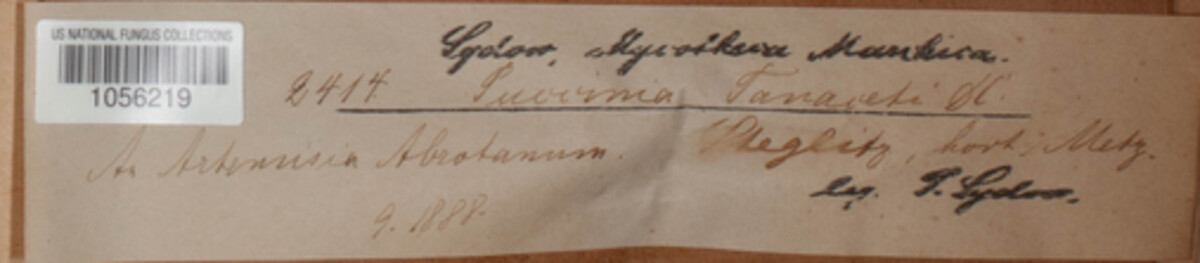 US NATIONAL FUNGUS COLLECTIONS
1056219
Sydow, Mycotheca Marchica.
2414. Puccinia Tanaceti DC.
An Artemisia Abrotanum. Steglitz, hort. Metz.
leg. P. Sydow.
9. 1888.